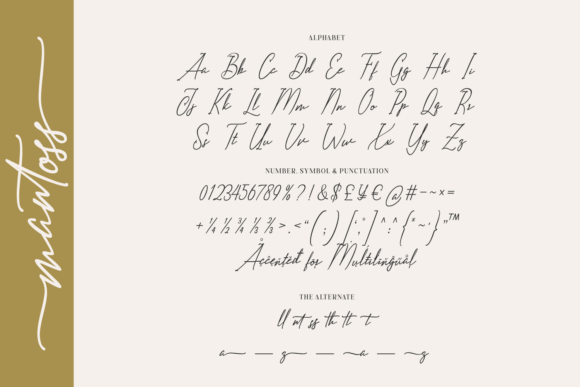 mantoss
ALPHABET
Aa Bb Cc Dd Ee Ff Gg Hh Ii
Jj Kk Ll Mm Nn Oo Pp Qq Rr
Ss Tt Uu Vv Ww Xx Yy Zz
NUMBER, SYMBOL & PUNCTUATION
0123456789%?!&$£¥€@#-~×=
+¼½¾⅓⅔>.<“(;)[,°]^:^{*~'}”™
Accented for Multilingual
THE ALTERNATE
ll nt ss th tt t
a — g — a — g